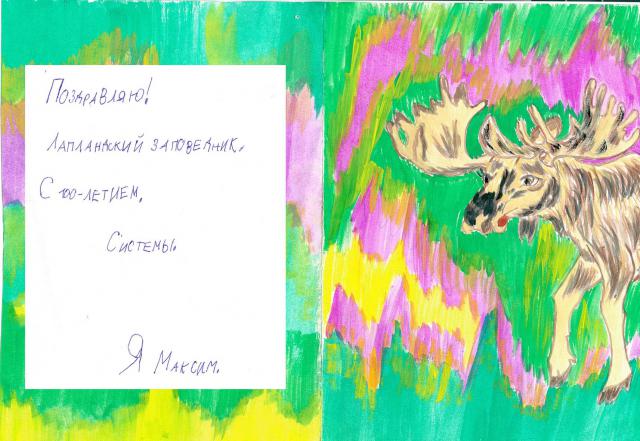 Поздравляю!
Лапландский заповедник.
С 100-летием,
Системы.
Я Максим.